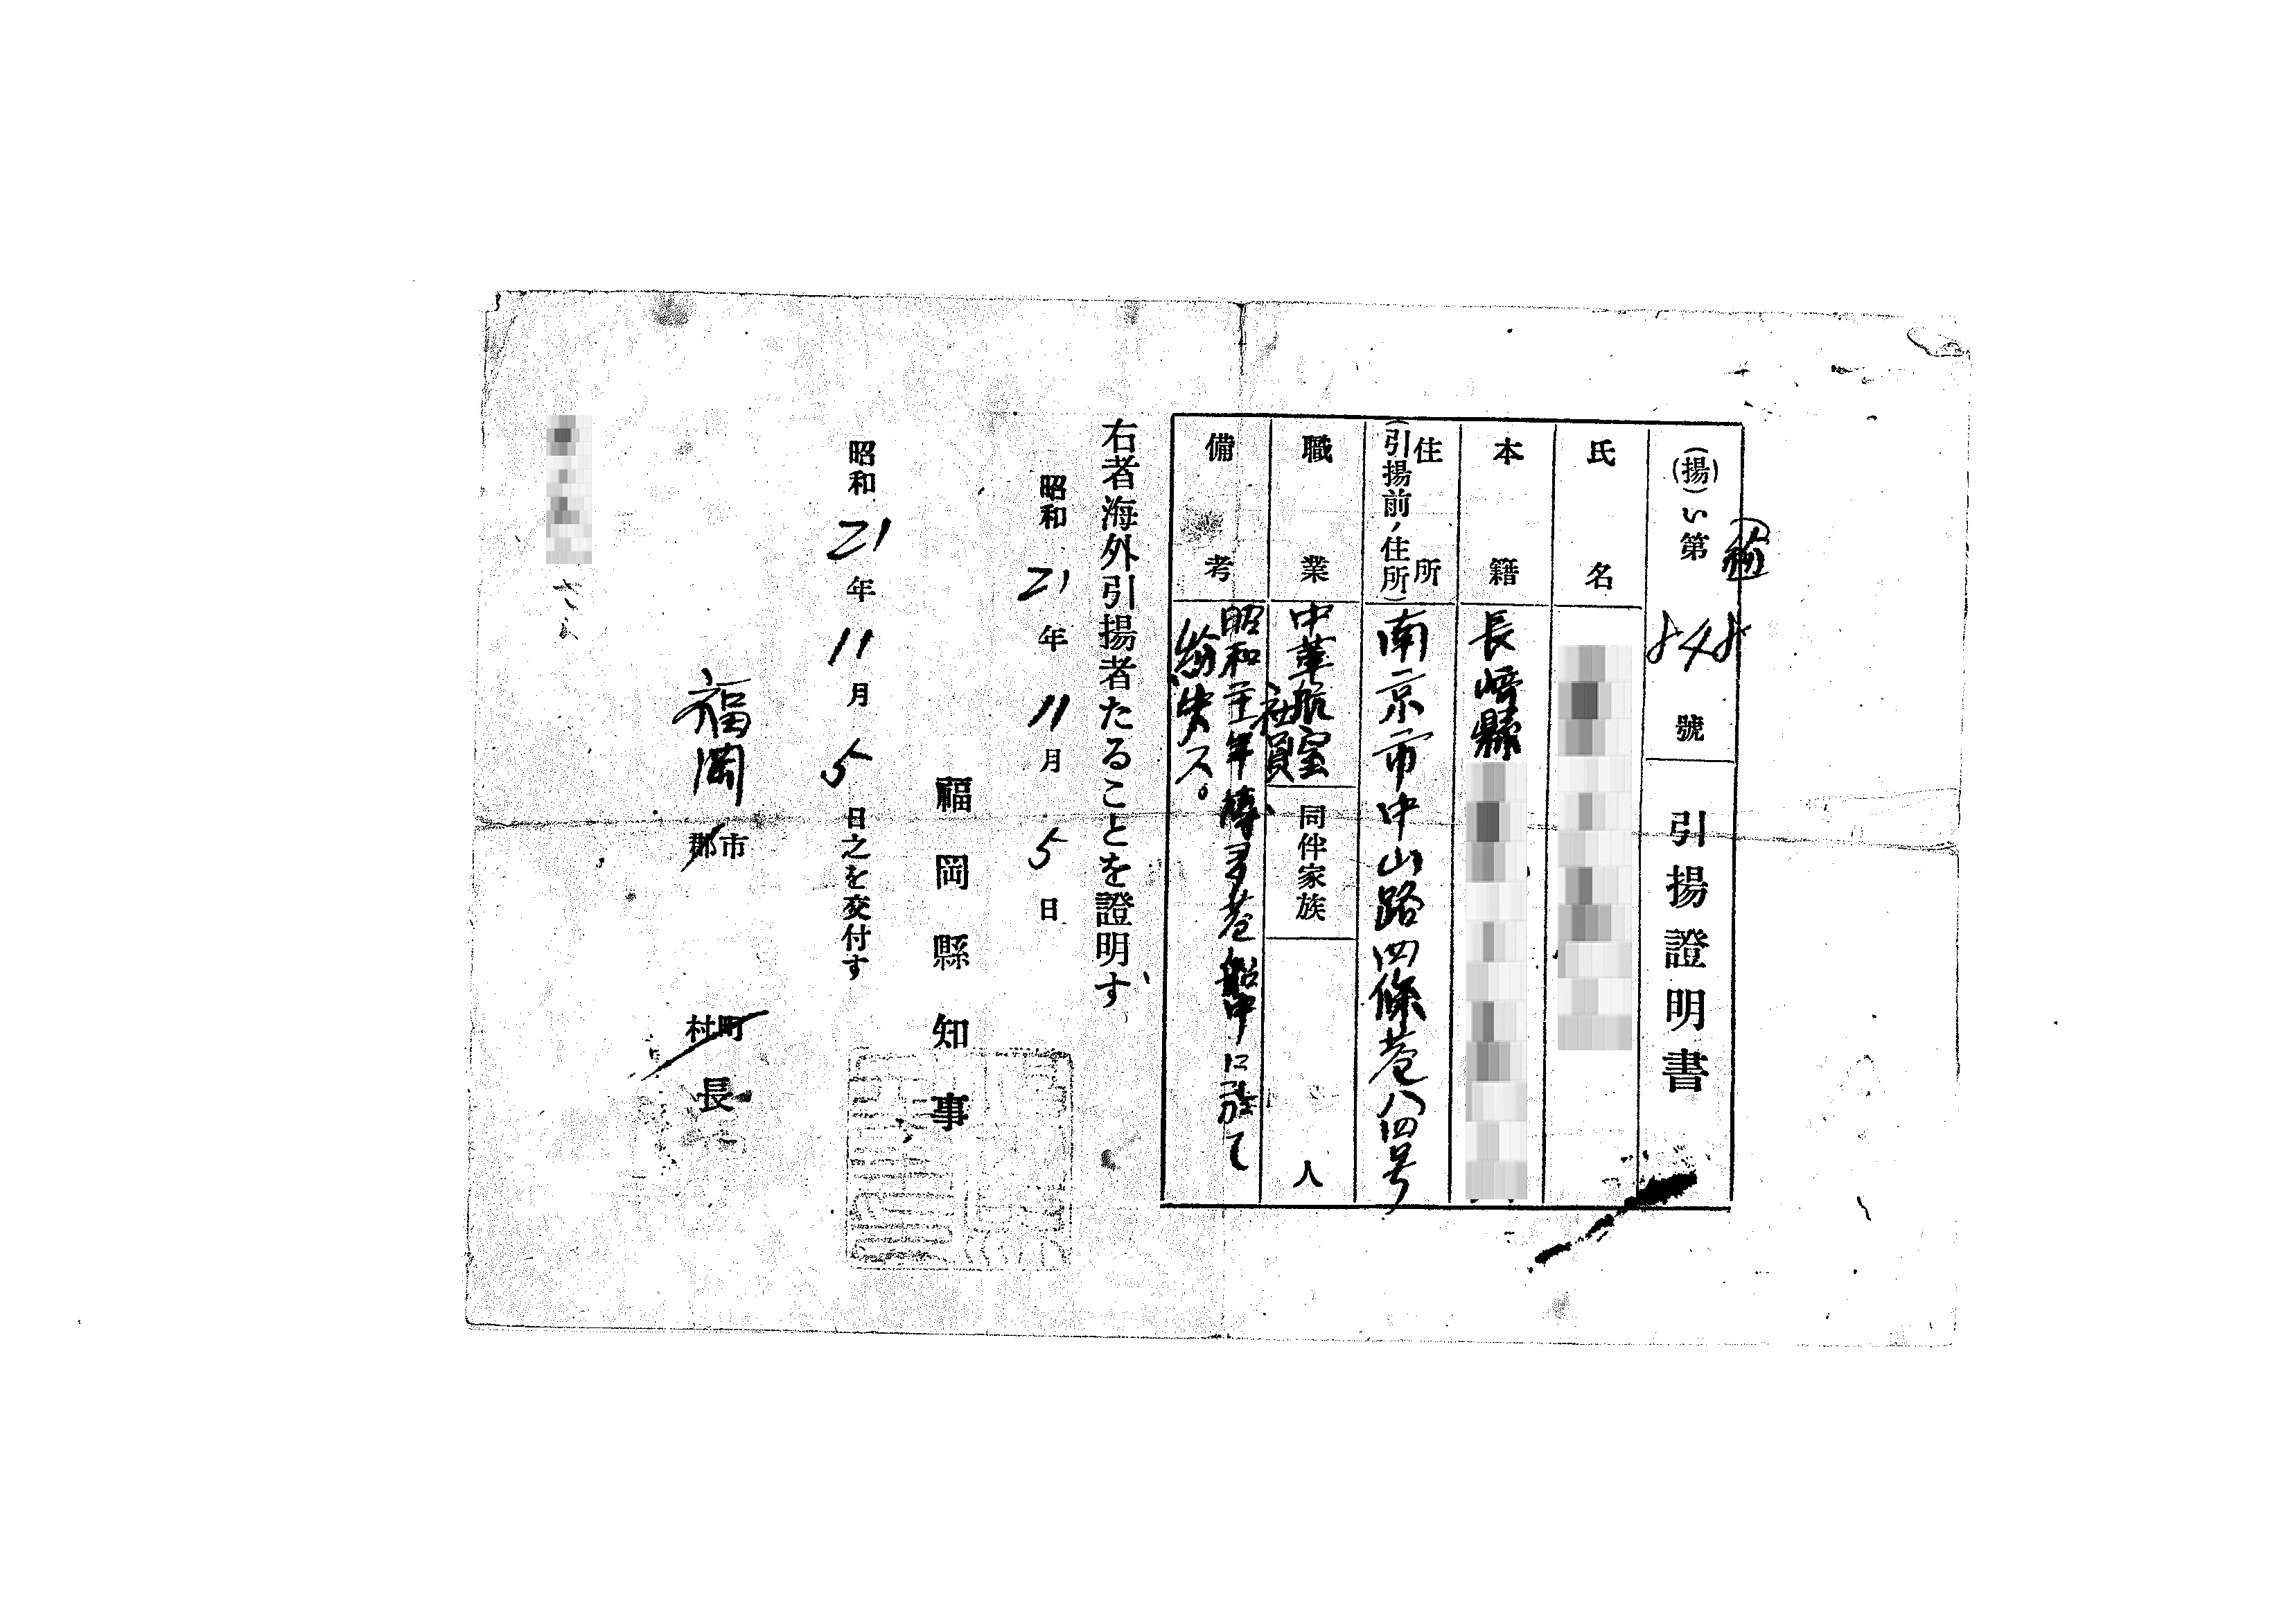 (揚)い第848號
引揚證明書
氏名
本籍 長崎縣
住所
(引揚前ノ住所)
南京市中山路四條巷八四号
職業 中華航空
社員
同伴家族 人
備考 昭和 年博多港船中に於て
紛失ス。
右者海外引揚者たることを證明す
昭和21年11月5日
福岡縣知事
昭和21年11月5日之を交付す
福岡
市
郡
町
村
長